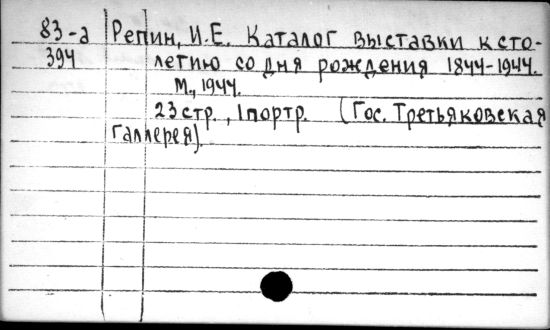 83-а Репин, И.Е. Каталог выставки к сто-
394 летию со дня рождения 1844-1944.
М., 1944.
23 стр., 1 портр. (Гос. Третьяковская
галлерея).